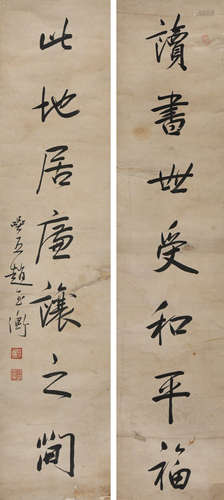 讀書世受和平福
此地居廉讓之間
趙玉衡